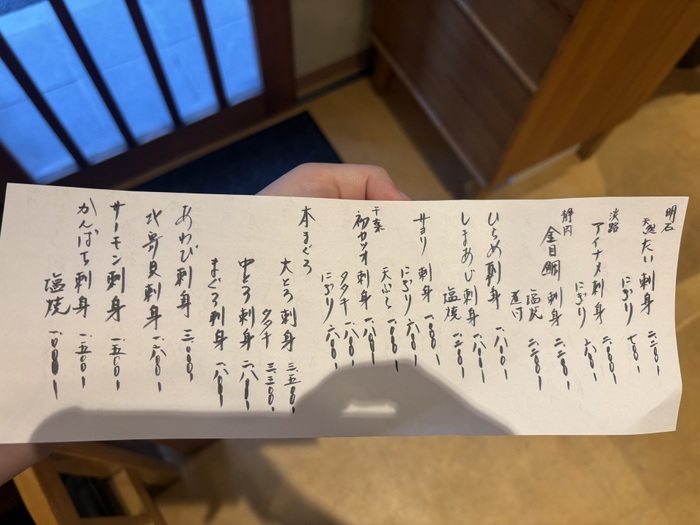 明石
天然 たい 刺身 二.二〇〇
にぎり 七〇〇
淡路
アイナメ刺身 二.〇〇〇
にぎり 六〇〇
静内
金目鯛 刺身 二.二〇〇
塩焼 二.二〇〇
煮付
ひらめ刺身 一.八〇〇
しまあじ刺身 一.八〇〇
塩焼 一.二〇〇
サヨリ 刺身 一.〇〇〇
にぎり 六〇〇
天ぷら 一.〇〇〇
千葉
初カツオ 刺身 一.八〇〇
タタキ 一.八〇〇
にぎり
本まぐろ
大とろ 刺身 三.五〇〇
タタキ 三.三〇〇
中とろ 刺身 二.八〇〇
まぐろ刺身 一.八〇〇
あわび刺身 三.〇〇〇
北寄貝刺身 一.八〇〇
サーモン刺身 一.五〇〇
かんぱち刺身 一.五〇〇
塩焼 一.〇〇〇